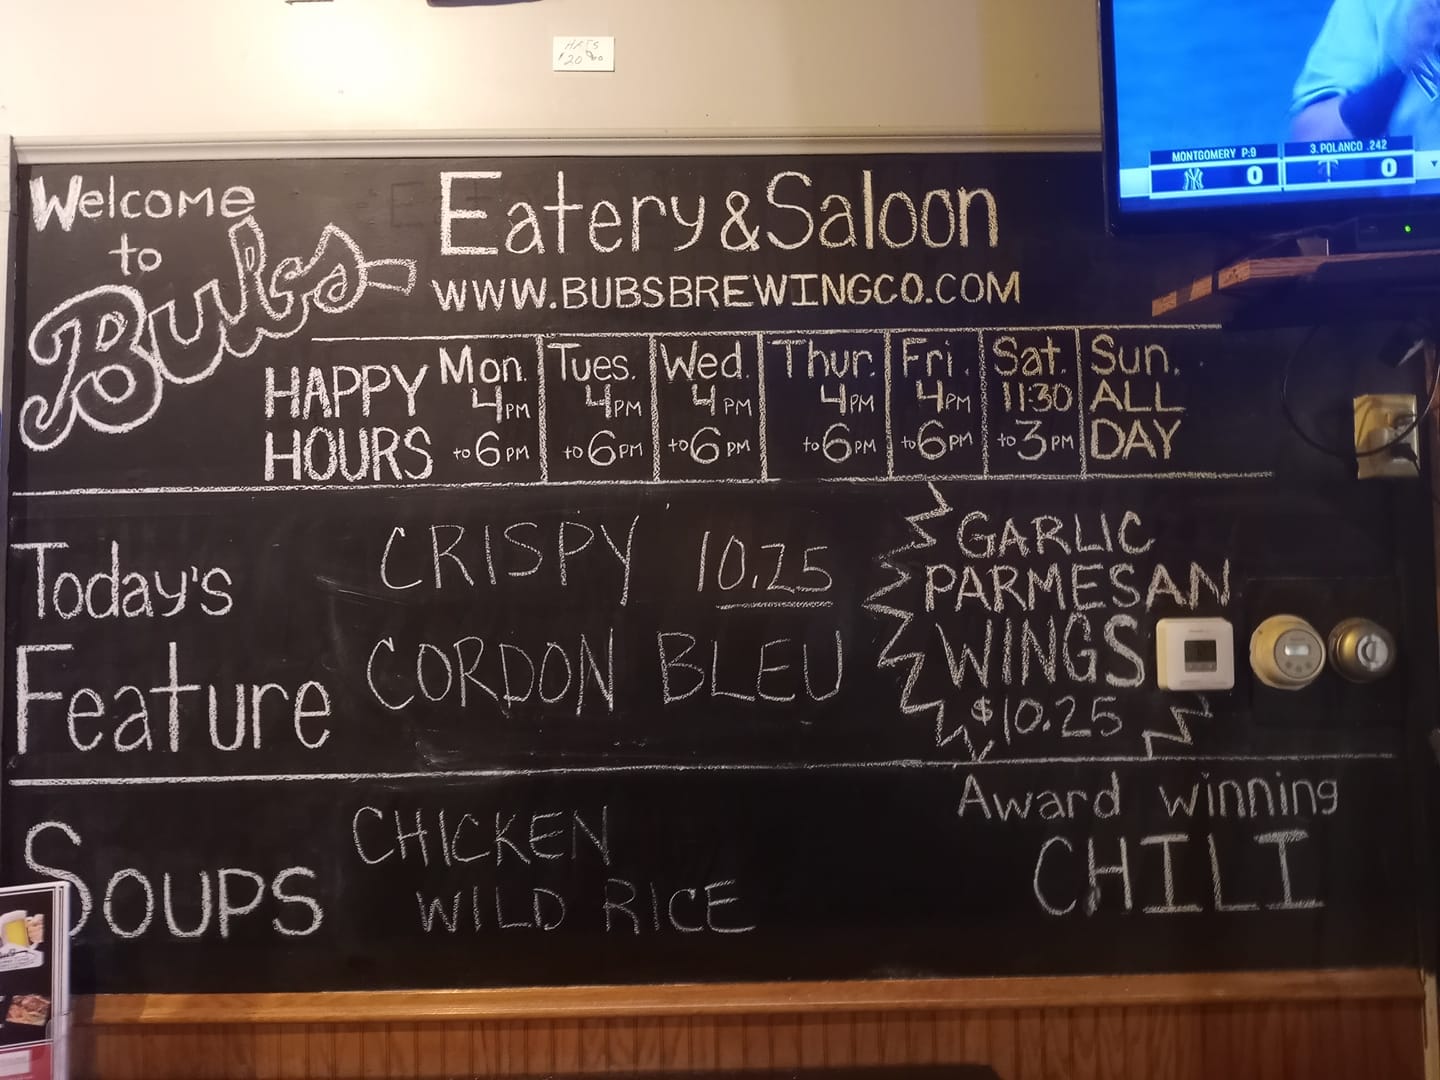 HATS
$20.00
MONTGOMERY P:9
3. POLANCO .242
NY 0
0
Welcome
to
Bubs
Eatery & Saloon
WWW.BUBSBREWINGCO.COM
HAPPY
HOURS
Mon. Tues. Wed. Thur. Fri. Sat. Sun.
4PM 4PM 4PM 4PM 4PM 11:30 ALL
to 6PM to 6PM to 6PM to 6PM to 6PM to 3PM DAY
Today's
Feature
CRISPY 10.25
CORDON BLEU
GARLIC
PARMESAN
WINGS
$10.25
SOUPS
CHICKEN
WILD RICE
Award winning
CHILI